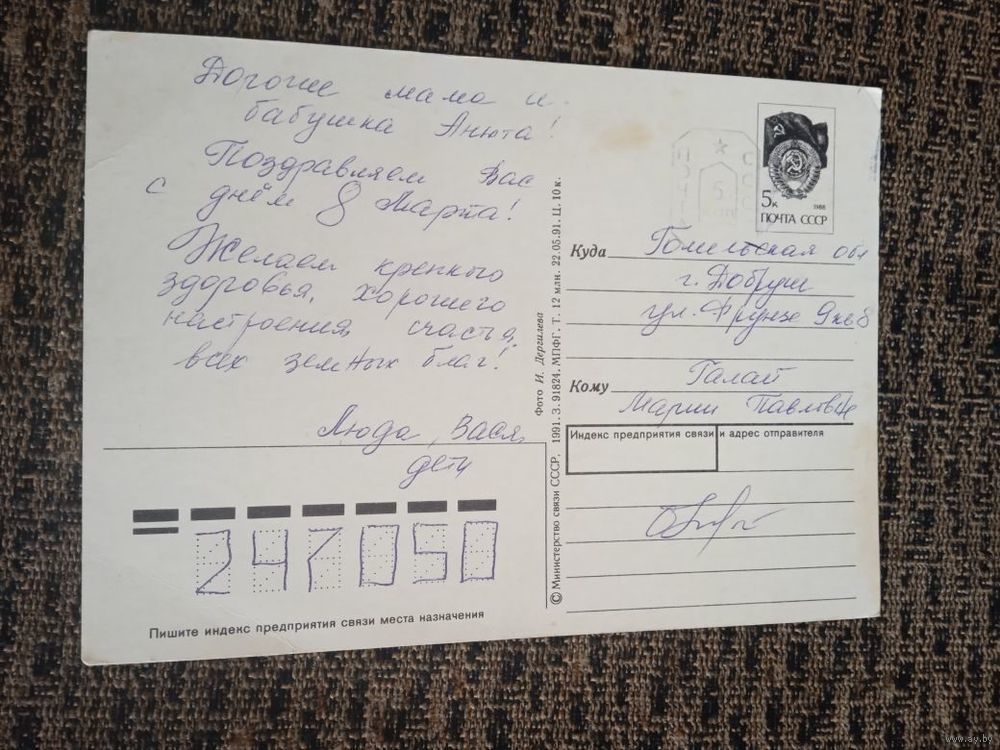 Дорогие мама и
бабушка Анюта!
Поздравляем Вас
с днём 8 Марта!
Желаем крепкого
здоровья, хорошего
настроения, счастья,
всех земных благ!
Люда, Вася,
дети
247050
Пишите индекс предприятия связи места назначения
© Министерство связи СССР, 1991. З. 91824. МПФГ. Т. 12 млн. 22.05.91. Ц. 10 к.
Фото И. Дергилева
ПОЧТА СССР
5
5к 1988
ПОЧТА СССР
Куда Гомельская обл
г. Добруш
ул. Фрунзе 9 кв 8
Кому Галай
Марии Павловне
Индекс предприятия связи и адрес отправителя
www.ay.by